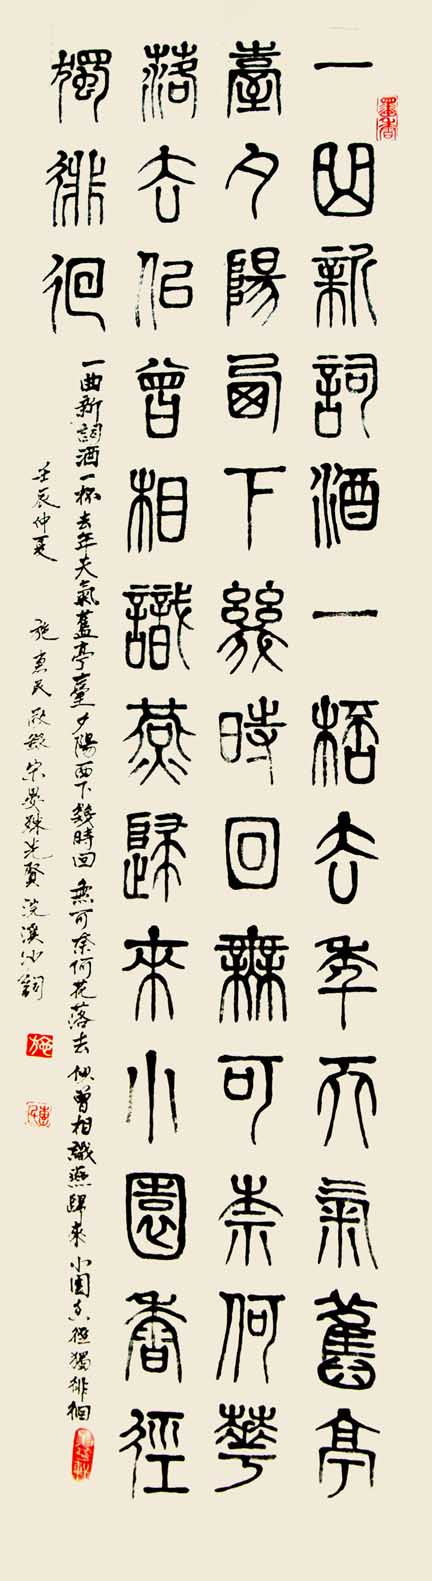 一曲新詞酒一桮去年天氣舊亭
臺夕陽西下幾時回無可柰何華
落去佀曾相識燕歸來小園香徑
獨徘徊
一曲新詞酒一杯去年天氣舊亭臺夕陽西下幾時回無可奈何花落去似曾相識燕歸來小園香徑獨徘徊
壬辰仲夏 施惠民敬錄宋晏殊先賢浣溪沙詞
施